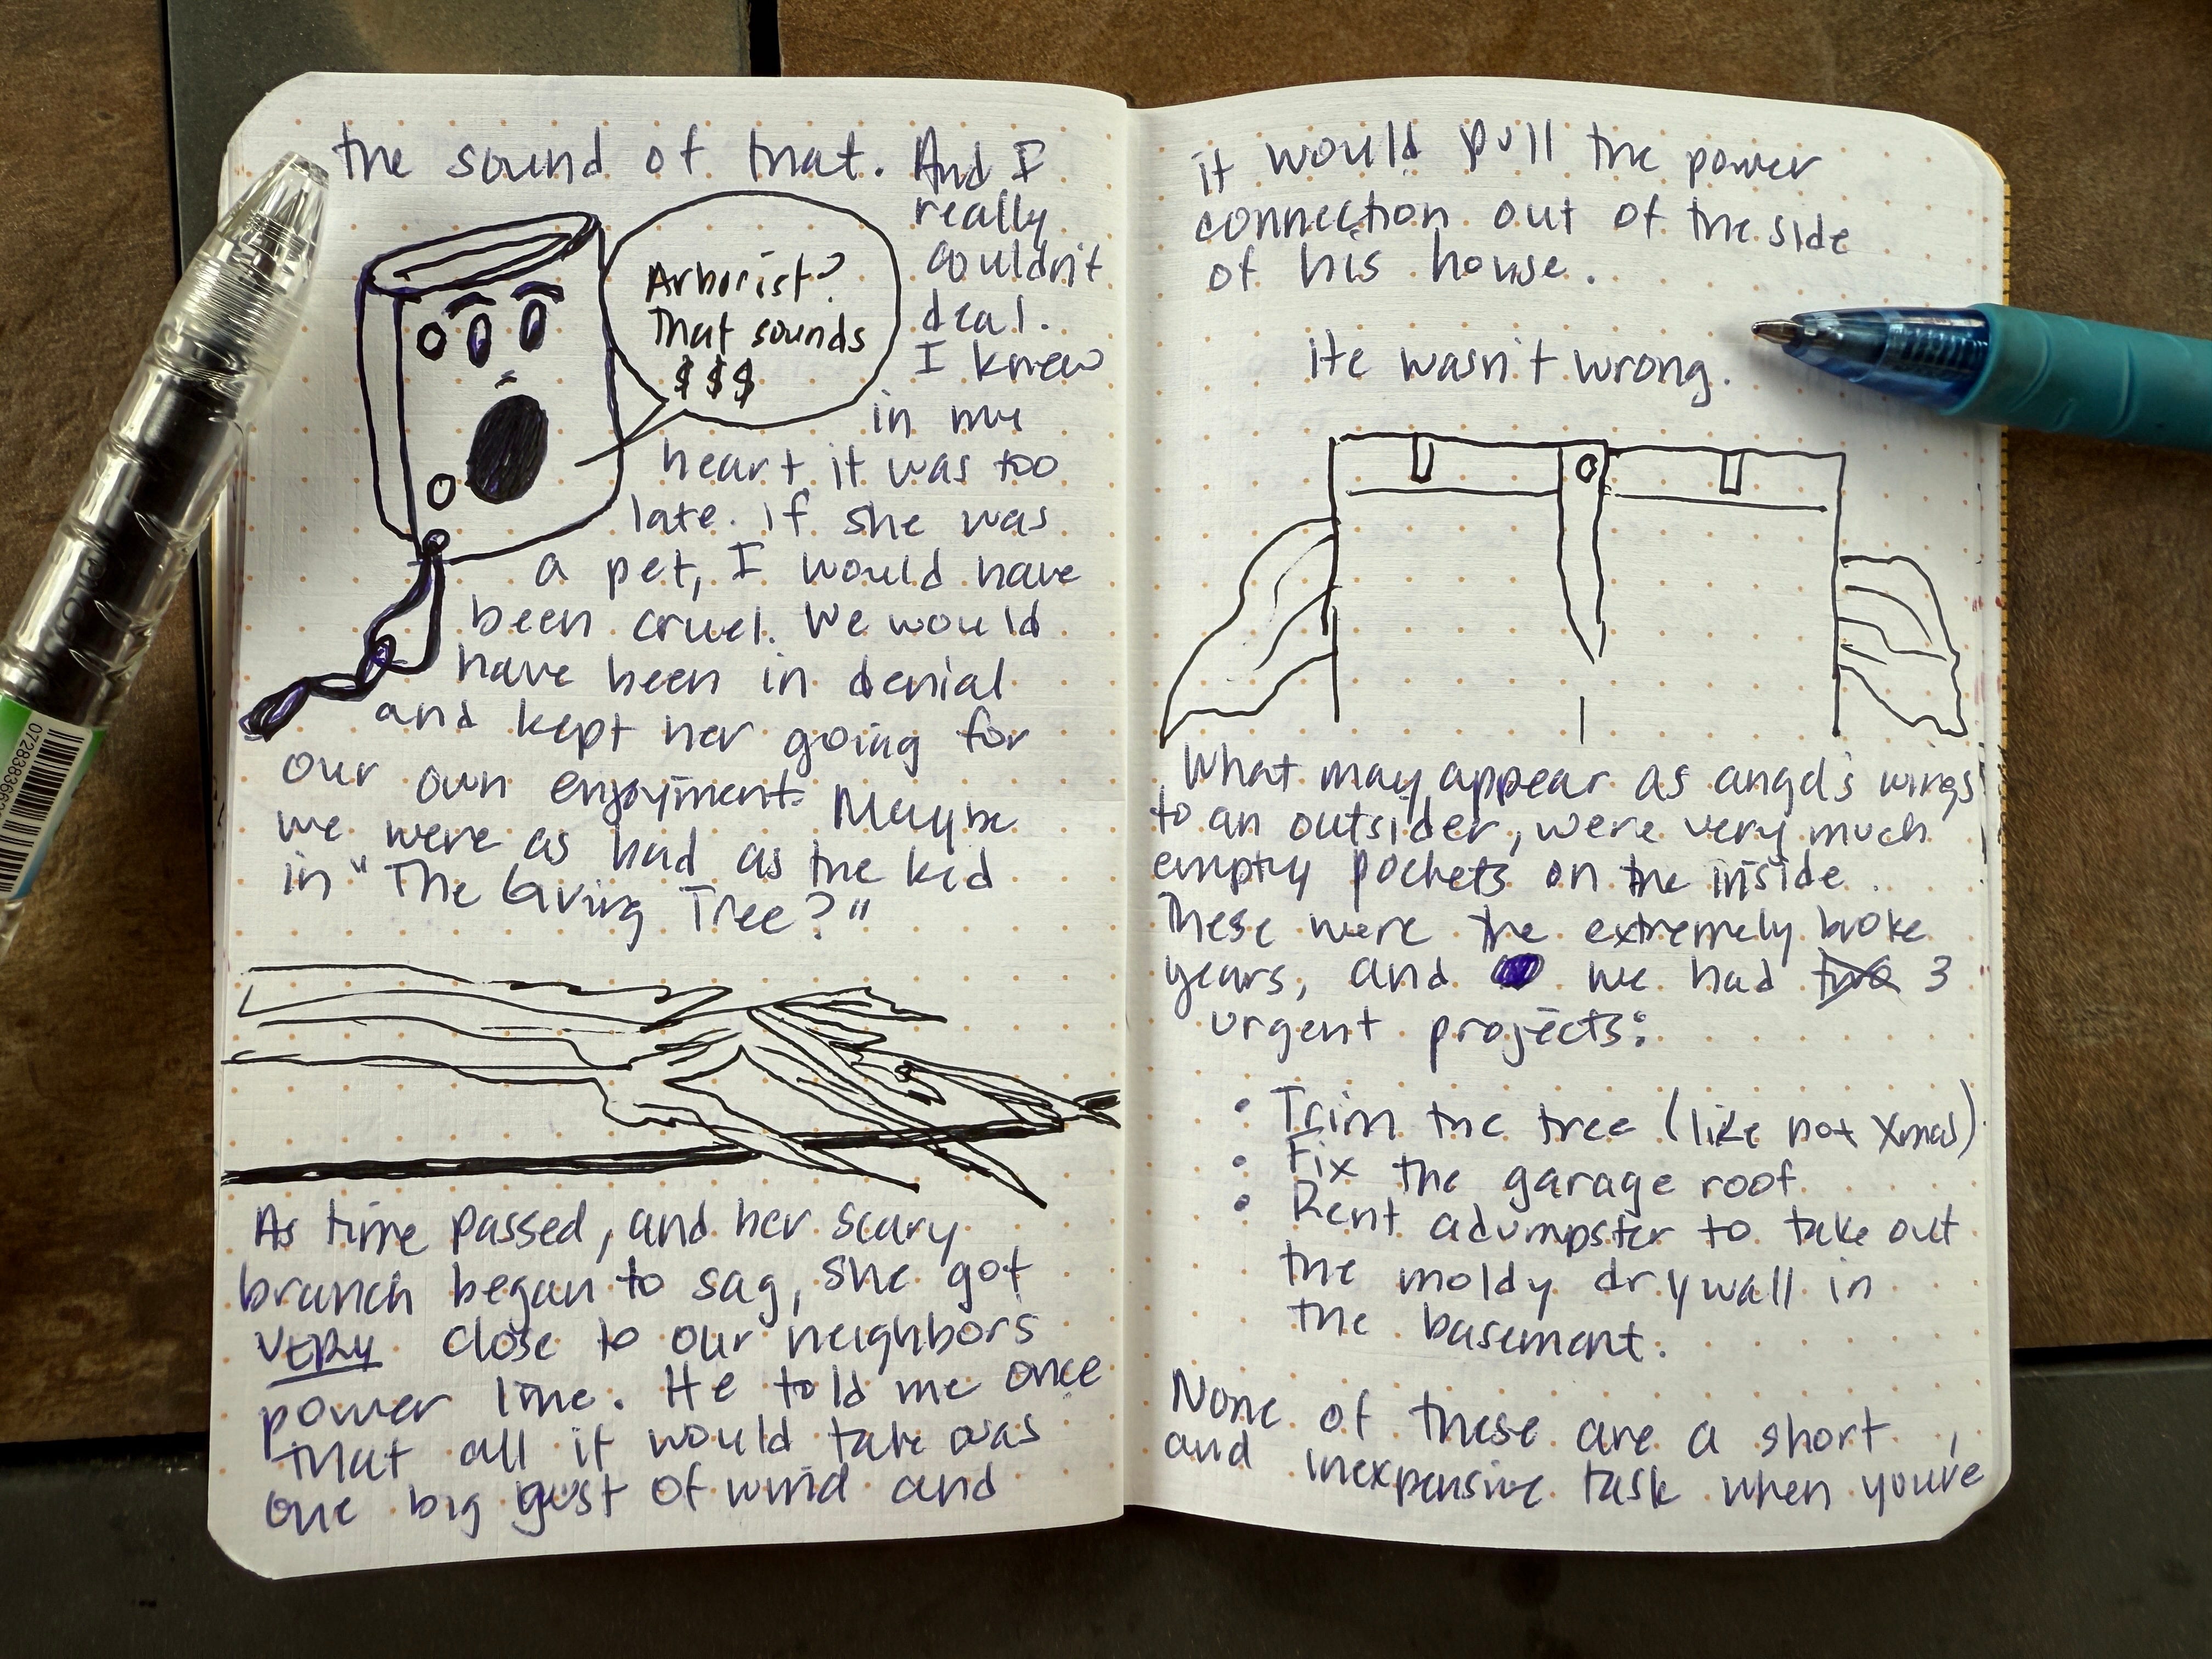 the sound of that. And I
really
couldn't
deal.
I knew
in my
heart it was too
late. If she was
a pet, I would have
been cruel. We would
have been in denial
and kept her going for
our own enjoyment. Maybe
we were as bad as the kid
in "The Giving Tree?"
Arborist?
That sounds
$$$
As time passed, and her scary
branch began to sag, she got
VERY close to our neighbors
power line. He told me once
that all it would take was
one big gust of wind and
it would pull the power
connection out of the side
of his house.
He wasn't wrong.
What may appear as angel's wings
to an outsider, were very much
empty pockets on the inside.
These were the extremely broke
years, and we had two 3
urgent projects:
• Trim the tree (like not Xmas)
• Fix the garage roof
• Rent a dumpster to take out
the moldy drywall in
the basement.
None of these are a short,
and inexpensive task when you're
PILOT